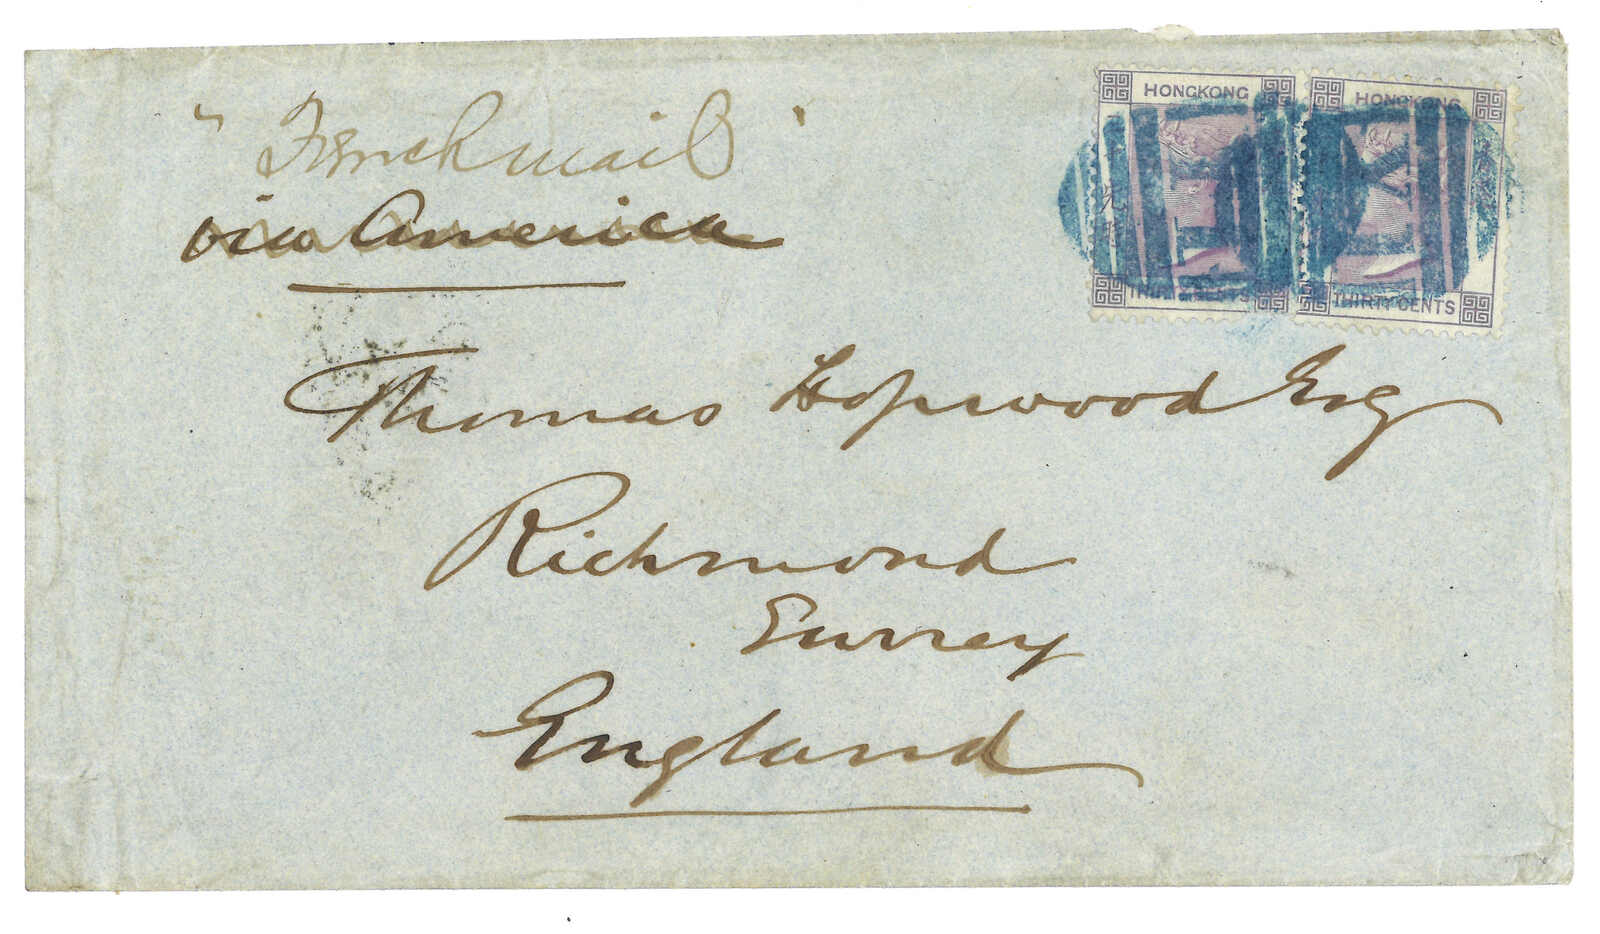 "French mail"
via America
HONGKONG
HONGKONG
THIRTY CENTS
THIRTY CENTS
Thomas Hopwood Esq
Richmond
Surrey
England